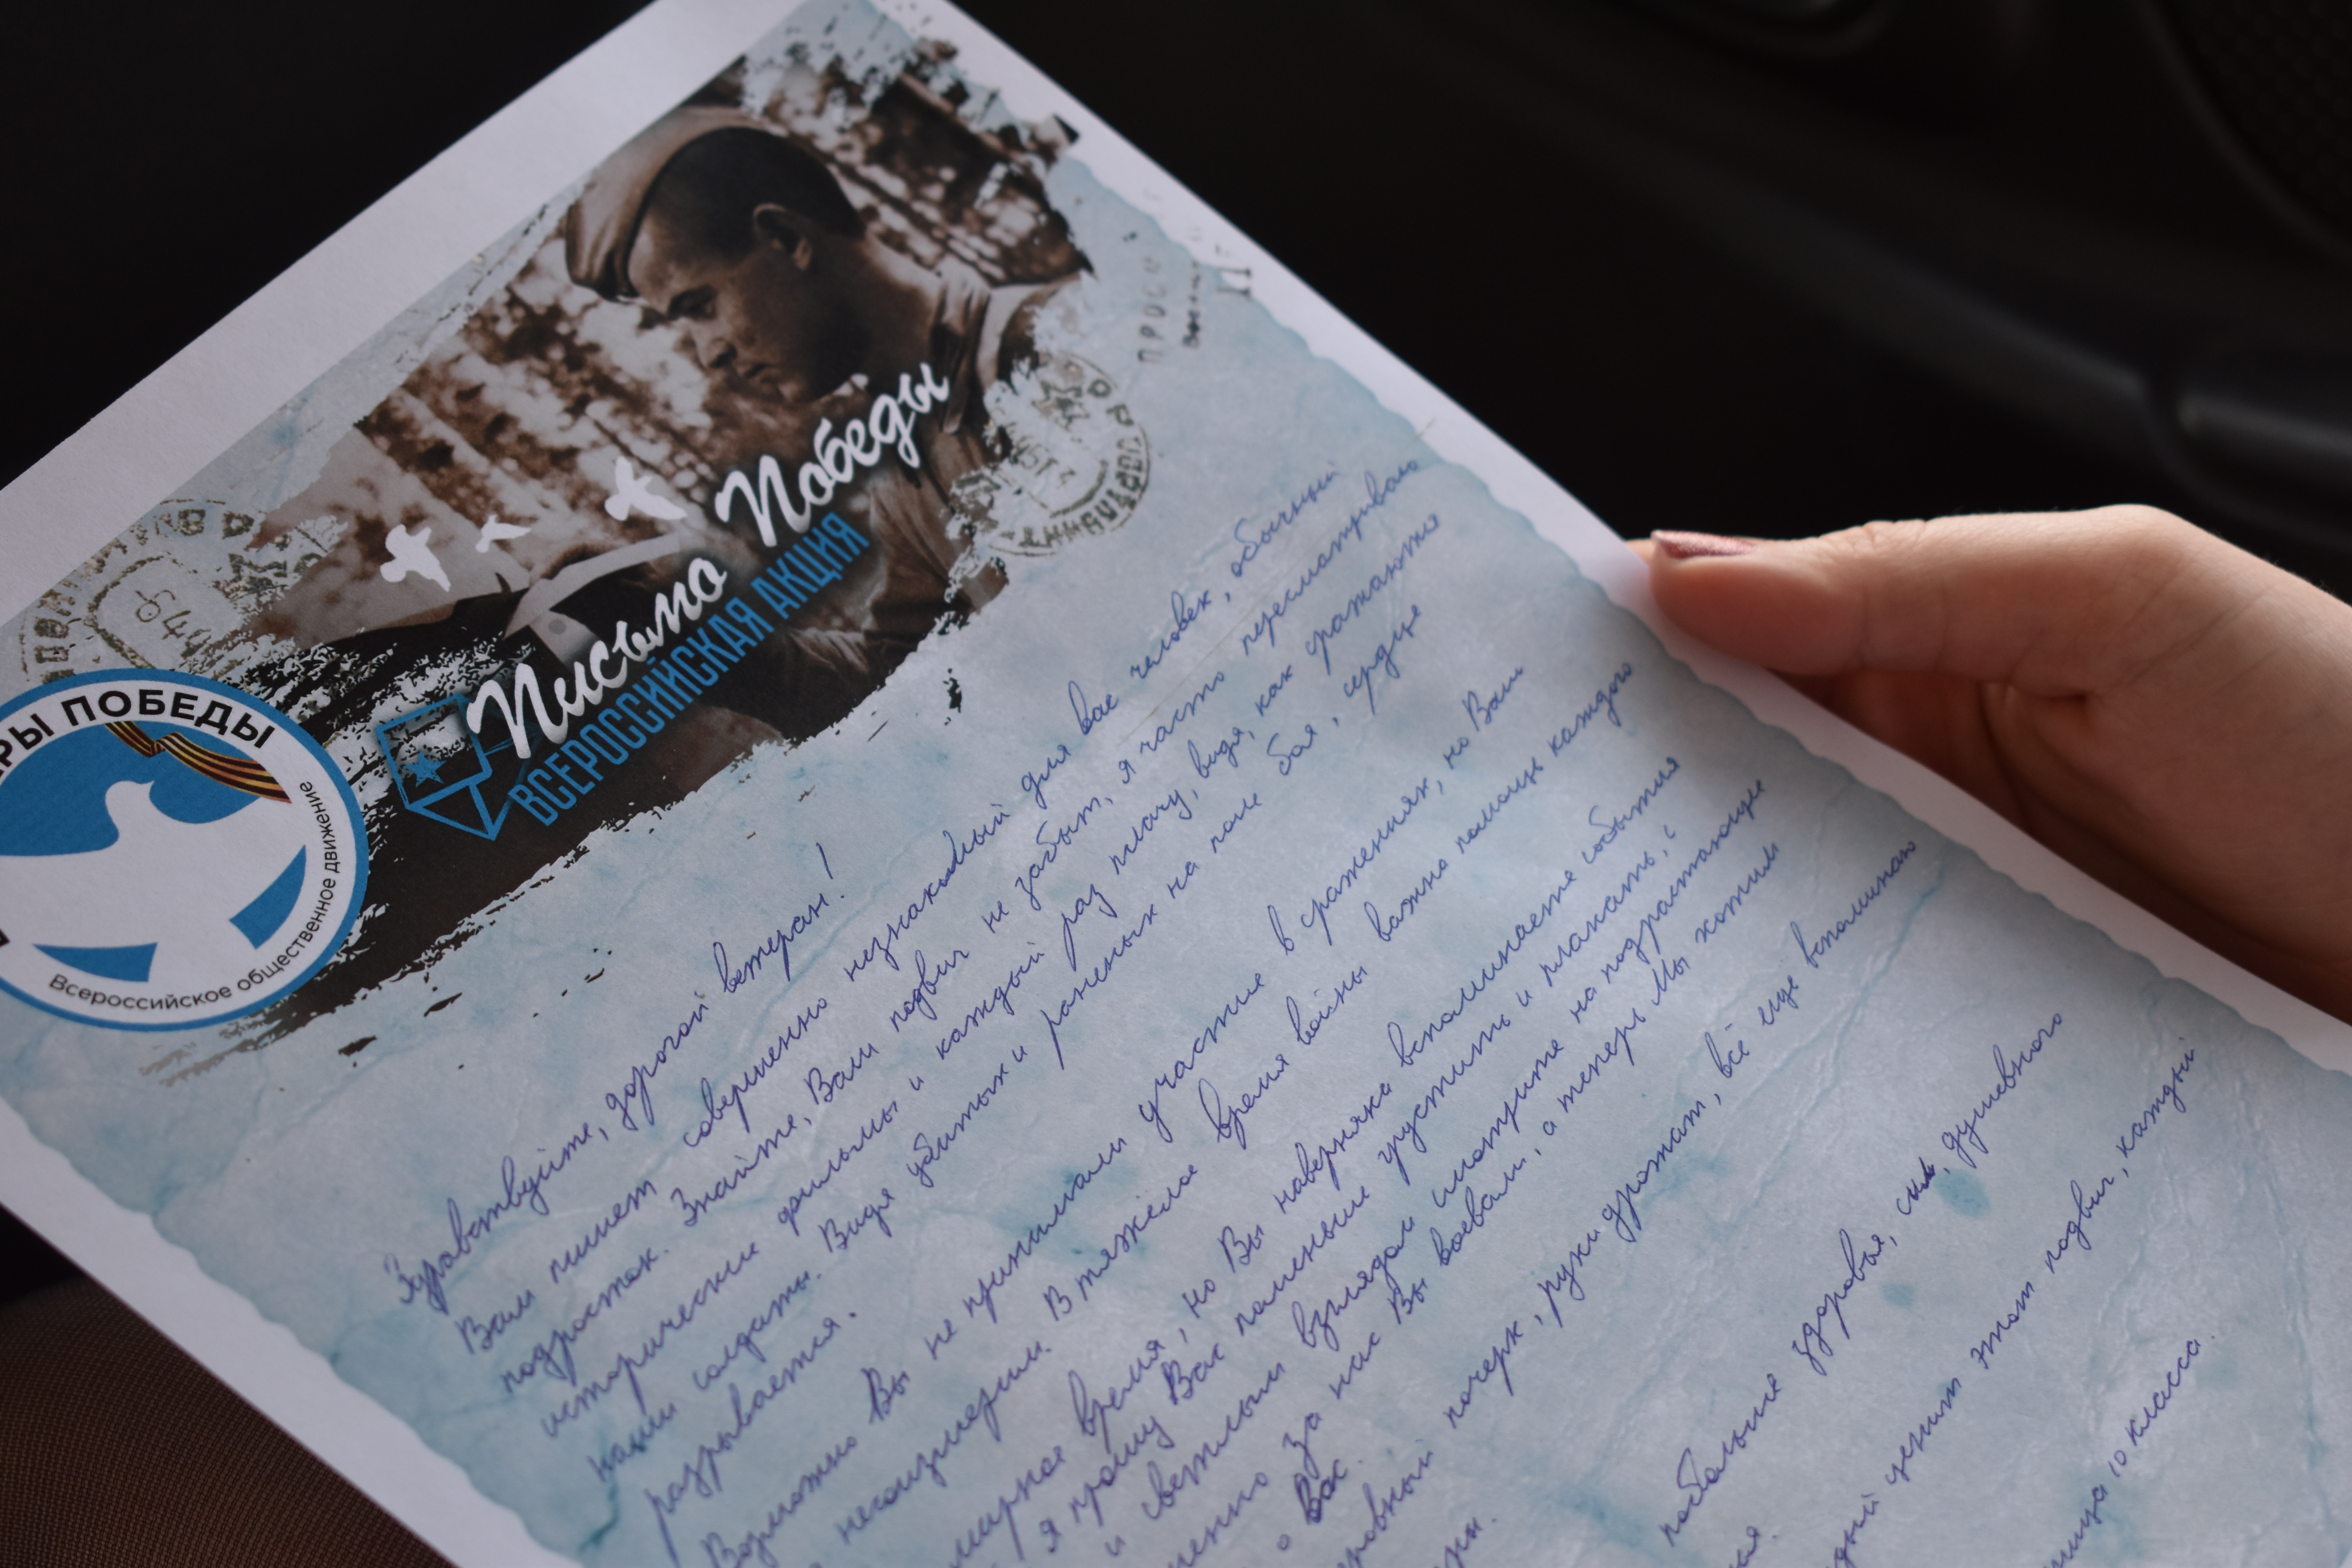 Письмо Победы
ВСЕРОССИЙСКАЯ АКЦИЯ
ПОБЕДЫ
Всероссийское общественное движение
Здравствуйте, дорогой ветеран!
Вам пишет совершенно незнакомый для вас человек, обычный
подросток. Знайте, Ваш подвиг не забыт, я часто пересматриваю
исторические фильмы и каждый раз плачу, видя, как сражаются
наши солдаты. Видя убитых и раненых на поле боя, сердце
разрывается.
Возможно Вы не принимали участие в сражениях, но Ваш
неоизмерим. В тяжёлое время войны важна помощь каждого
мирное время, но Вы наверняка вспоминаете события
я прошу Вас поменьше грустить и плакать,
и светлым взглядом смотрите на подрастающее
за нас Вы воевали, а теперь Мы хотим
о Вас.
почерк, руки дрожат, всё ещё вспоминаю
побольше здоровья, сил, душевного
ценит этот подвиг, каждый
10 класса.